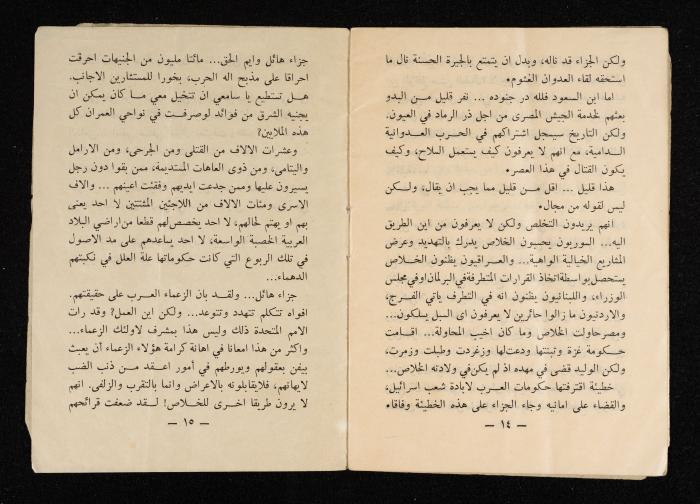 ولكن الجزاء قد ناله، وبدل ان يتمتع بالجيرة الحسنة نال ما
استحقه لقاء العدوان الغشوم.
اما ابن السعود فلله در جنوده ... نفر قليل من البدو
بعثهم لخدمة الجيش المصرى من اجل ذر الرماد في العيون.
ولكن التاريخ سيسجل اشتراكهم في الحرب العدوانية
الدامية، مع انهم لا يعرفون كيف يستعمل السلاح، وكيف
يكون القتال في هذا العصر.
هذا قليل ... اقل من قليل مما يجب ان يقال، ولكن
ليس لقوله من مجال.
انهم يريدون التخلص ولكن لا يعرفون من اين الطريق
اليه... السوريون يحسبون الخلاص يدرك بالتهديد وعرض
المشاريع الخيالية الواهية... والعراقيون يظنون الخلاص
يستحصل بواسطة اتخاذ القرارات المتطرفة في البرلمان او في مجلس
الوزراء، واللبنانيون يظنون انه في التطرف ياتي الفرج،
والاردنيون ما زالوا حائرين لا يعرفون اى السبل يسلكون...
ومصر حاولت الخلاص وما كان اخيب المحاولة... اقامت
حكومة غزة وثبتتها ودعت لها وزغردت وطبلت وزمرت،
ولكن الوليد قضى في مهده اذ لم يكن في ولادته الخلاص...
خطيئة اقترفتها حكومات العرب لابادة شعب اسرائيل،
والقضاء على امانيه وجاء الجزاء على هذه الخطيئة وفاقا.
— ١٤ —
جزاء هائل وايم الحق... مائتا مليون من الجنيهات احرقت
احراقا على مذبح اله الحرب، بخورا للمستثارين الاجانب.
هل تستطيع يا سامعي ان تتخيل معي ما كان يمكن ان
يجنيه الشرق من فوائد لو صرفت في نواحي العمران كل
هذه الملايين؟
وعشرات الالاف من القتلى ومن الجرحى، ومن الارامل
واليتامى، ومن ذوى العاهات المستديمة، ممن بقوا دون رجل
يسيرون عليها وممن جدعت ايديهم وفقئت اعينهم ... والاف
الاسرى ومئات الالاف من اللاجئين المشتتين لا احد يعنى
بهم او يهتم لحالهم، لا احد يخصص لهم قطعا من اراضي البلاد
العربية الخصبة الواسعة، لا احد يساعدهم على مد الاصول
في تلك الربوع التي كانت حكوماتها علة العلل في نكبتهم
الدهماء...
جزاء هائل... ولقد بان الزعماء العرب على حقيقتهم.
افواه تتكلم تتهدد وتتوعد... ولكن اين العمل؟ وقد رات
الامم المتحدة ذلك وليس هذا بمشرف لاولئك الزعماء...
واكثر من هذا امعانا في اهانة كرامة هؤلاء الزعماء أن يعبث
بيفن بعقولهم ويورطهم في أمور اعقد من ذنب الضب
لايهانهم، فلا يقابلونه بالاعراض وانما بالتقرب والزلفى. انهم
لا يرون طريقا اخرى للخلاص! لقد ضعفت قرائحهم
— ١٥ —